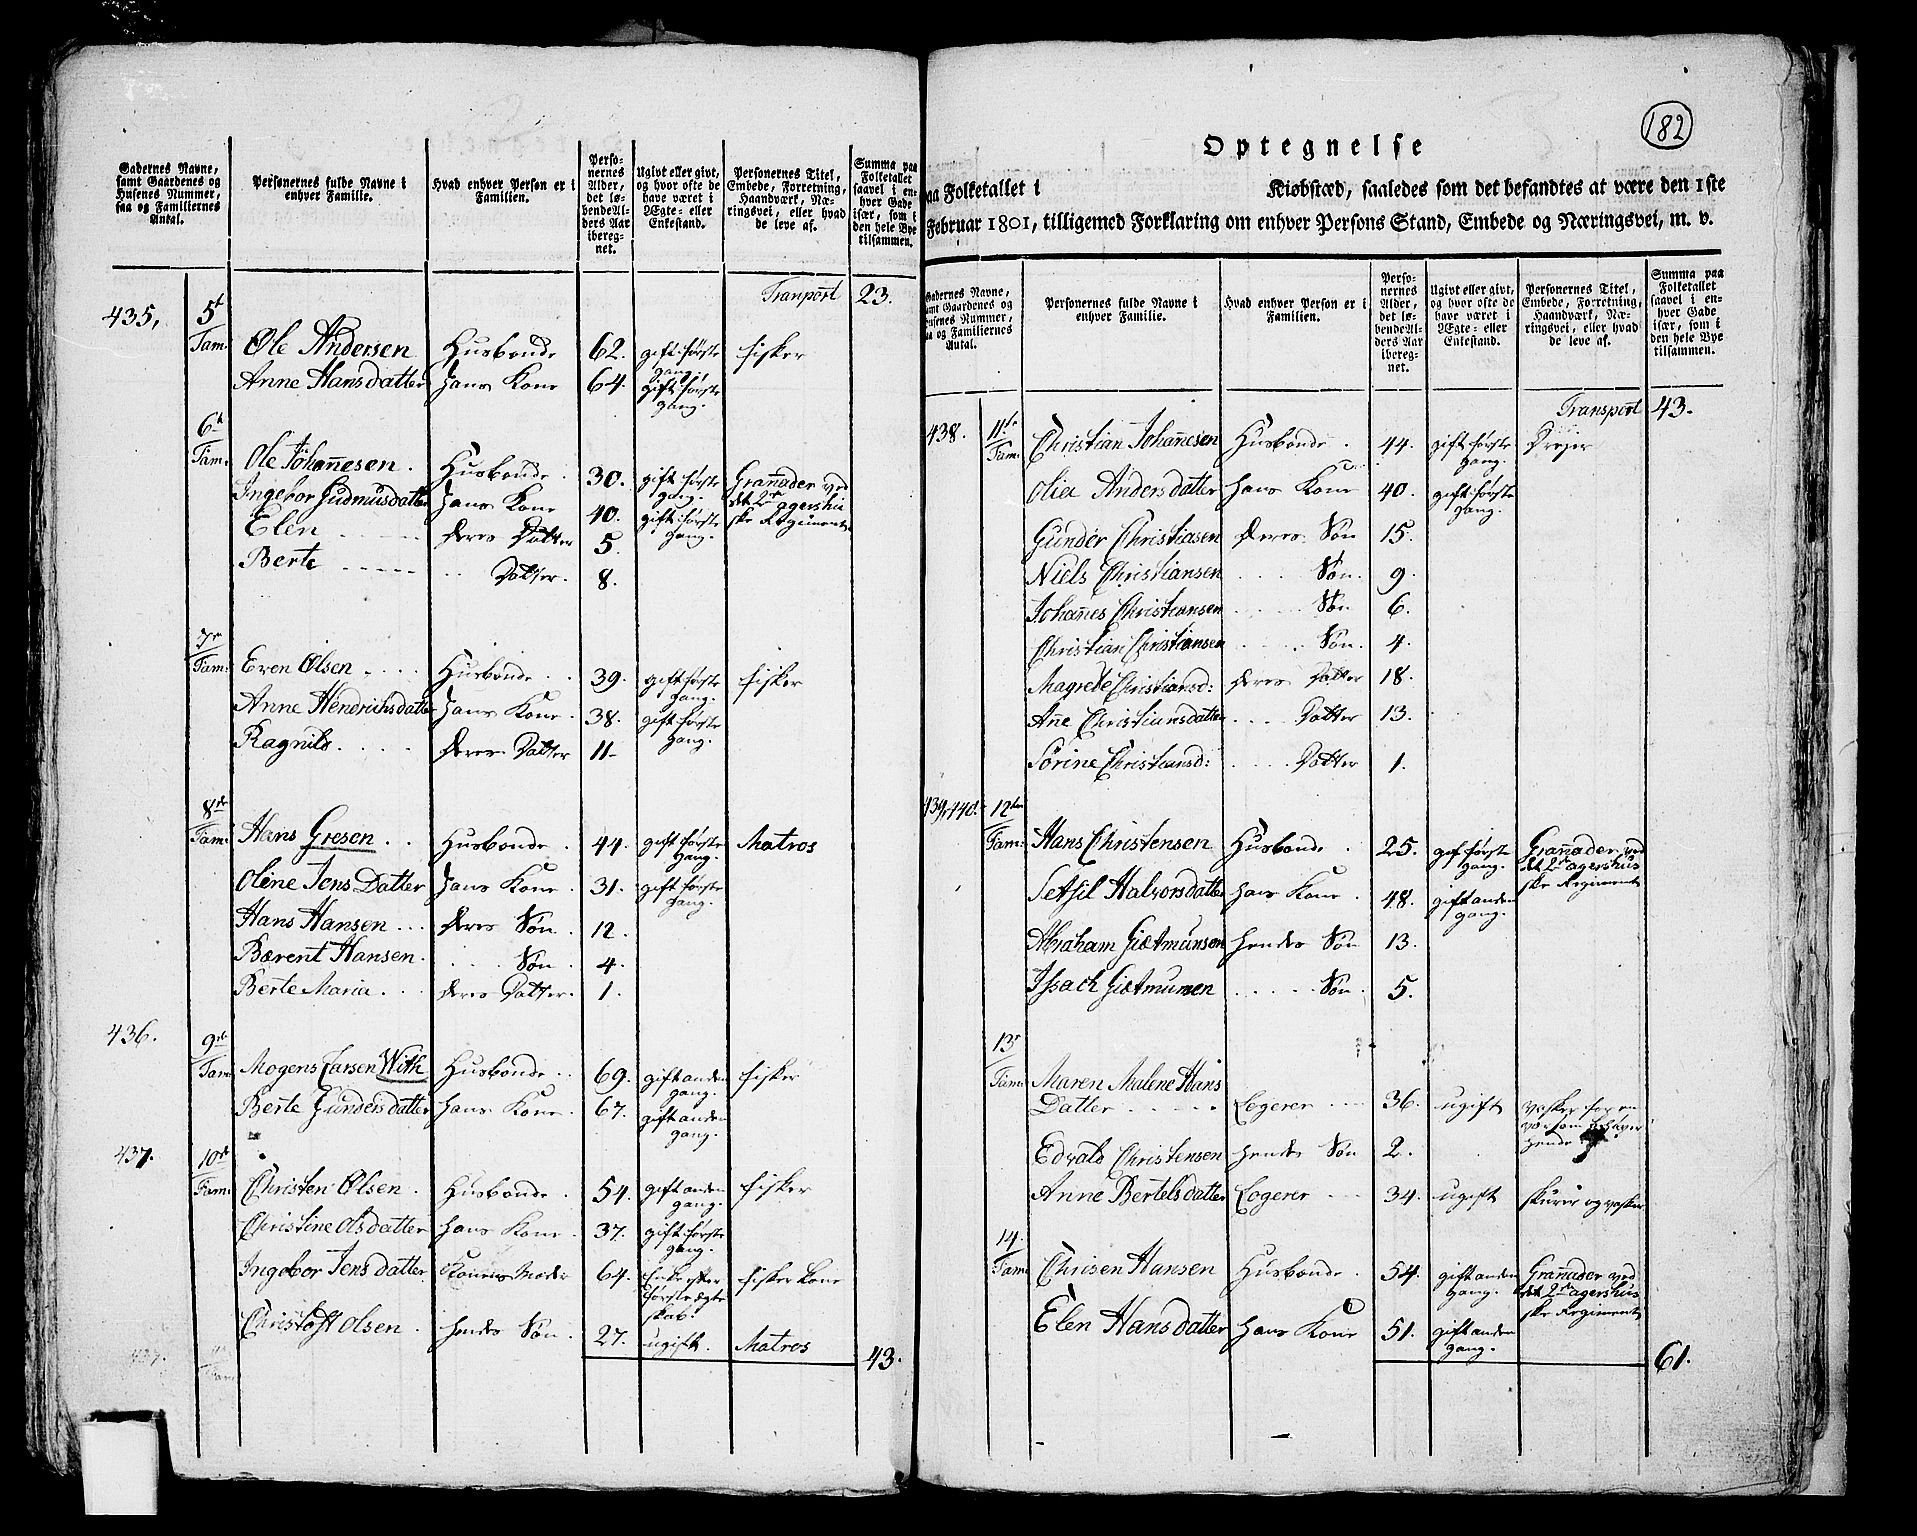 Gadernes Navne, samt Gaardenes og Husenes Nummer, saa og Familiernes Antal.
Personernes fulde Navne i enhver Familie.
Hvad enhver Person er i Familien.
Personernes Alder, det løbende Alders Aar iberegnet.
Ugivt eller givt, og hvor ofte de have været i Ægte- eller Enkestand.
Personernes Titel, Embede, Forretning, Haandværk, Næringsvei, eller hvad de leve af.
Summa paa Folketallet saavel i enhver Gade især, som i den hele Bye tilsammen.
Tranport 23.
435, 5t Fam:
Ole Andersen Husbonde 62. gift første gang fisker
Anne Hansdatter hans Kone 64. gift første gang.
6te Fam:
Ole Johañesen. Husbonde. 30. gift første gang. Grañader ved det 2de agershuske Regiment
Ingebor Gudmusdatter hans Kone 40. gift første gang.
Elen deres Datter 5.
Berte Datter. 8.
7de Fam:
Even Olsen Husbonde 39. gift første gang. fisker
Anne Hendrichsdatter hans Kone. 38. gift første gang.
Ragnild. deres Datter 11
8de Fam:
Hans Gresen Husbonde. 44. gift første gang. Matros
Oline Jens Datter hans Kone. 31. gift første gang.
Hans Hansen deres Søn. 12.
Bærent Hansen. Søn. 4.
Berte Maria deres Datter. 1.
436. 9de Fam:
Mogens Larsen With Husbonde 69. gift anden gang. fisker
Berte Gundersdatter hans Kone. 67. gift anden gang.
437. 10de Fam:
Christen Olsen. Husbonde. 54. gift anden gang. fisker
Christine Olsdatter hans Kone. 37. gift første gang.
Ingebor Jensdatter Konens Moder 64. Enke efter første ægteskab. fisker kone
Christofr Olsen. hendes Søn. 27. ugift. Matros
43.
182
Optegnelse
paa Folketallet i Kiøbstæd, saaledes som det befandtes at være den 1ste
Februar 1801, tilligemed Forklaring om enhver Persons Stand, Embede og Næringsvei, m. v.
Gadernes Navne, samt Gaardenes og Husenes Nummer, saa og Familiernes Antal.
Personernes fulde Navne i enhver Familie.
Hvad enhver Person er i Familien.
Personernes Alder, det løbende Alders Aar iberegnet.
Ugivt eller givt, og hvor ofte de have været i Ægte- eller Enkestand.
Personernes Titel, Embede, Forretning, Haandværk, Næringsvei, eller hvad de leve af.
Summa paa Folketallet saavel i enhver Gade især, som i den hele Bye tilsammen.
Transport 43.
438. 11te Fam:
Christian Johañesen Husbonde. 44. gift første gang. Drejer
Olia Andersdatter hans Kone 40. gift første gang.
Gunder Christiasen deres Søn 15.
Niels Christiansen Søn. 9.
Johañes Christiansen Søn 6.
Christian Christiansen Søn. 4.
Magrete Christiansd: deres Datter 18.
Añe Christiansdatter Datter 13.
Sørine Christiansd: Datter 1.
439, 440. 12te Fam:
Hans Christensen Husbonde. 25. gift første gang. Grañader ved det 2de agershuske Regiment
Setsil Halvorsdatter hans Kone. 48. gift anden gang.
Abraham Giætmunsen hendes Søn 13.
Issach Giætmunsen Søn. 5.
13de Fam:
Maren Malene Hans Datter Logerer 36. ugift vasker for
Edvald Christensen hendes Søn 2.
Anne Bertelsdatter Logerer 34. ugift skurer og vasker
14. Fam:
Chrisen Hansen Husbonde 54. gift anden gang. Grañader ved det 2de agershuske Regiment
Elen Hansdatter hans Kone 51. gift anden gang.
61.